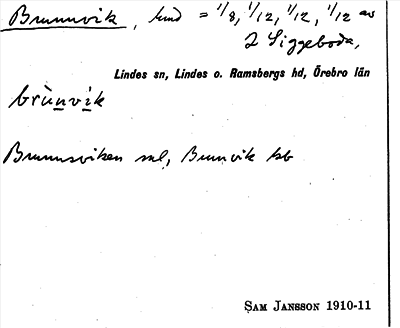 Brunnvik, hmd = 1/8, 1/12, 1/12, 1/12 av
2 Siggeboda,
Lindes sn, Lindes o. Ramsbergs hd, Örebro län
brùnvìk
Brunnsviken sml, Brunvik kb
SAM JANSSON 1910-11